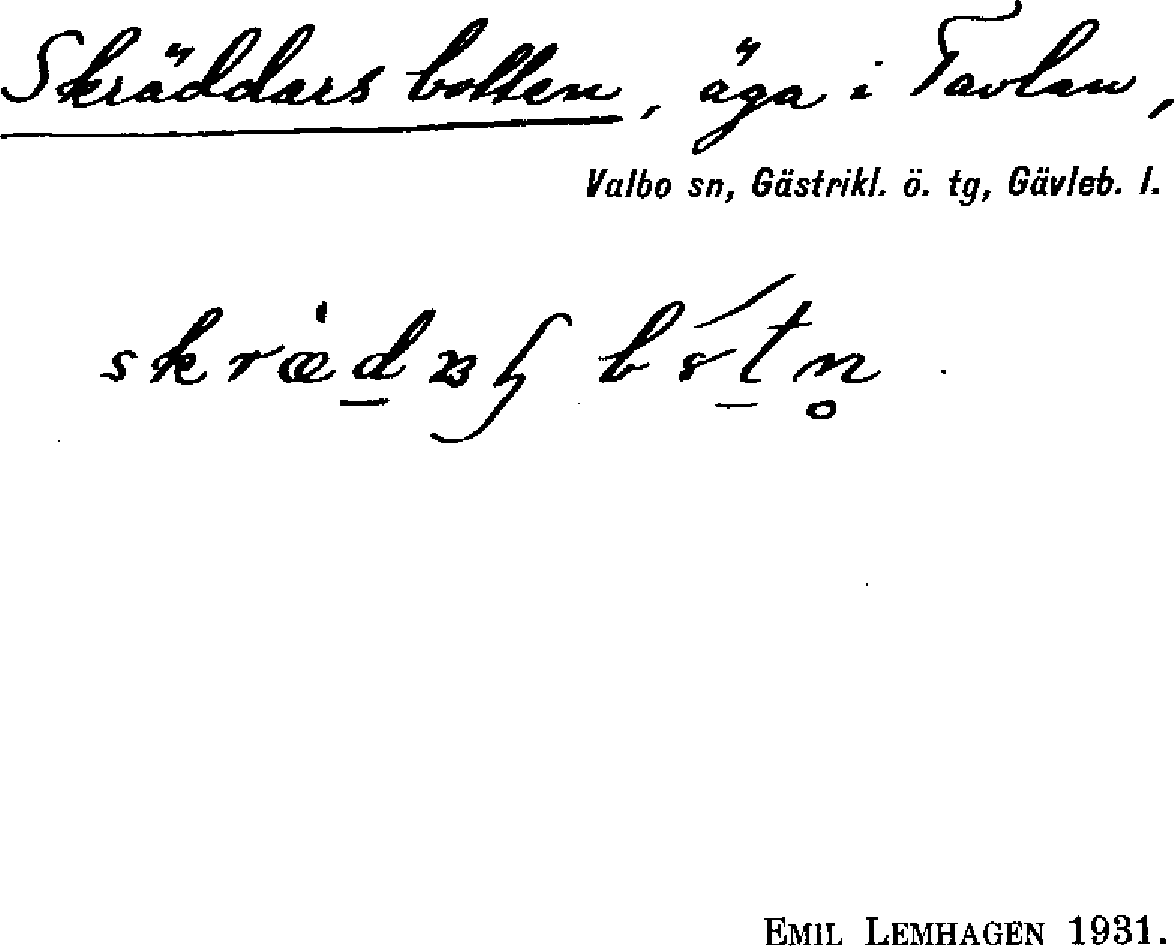 Skräddars botten, äga i Tavlan,
Valbo sn, Gästrikl. ö. tg, Gävleb. l.
EMIL LEMHAGEN 1931.